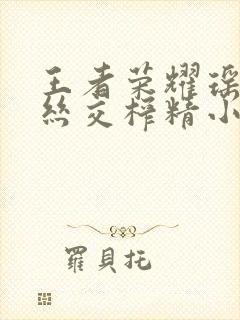 王者荣耀瑶
丝交榨精小
羅貝托